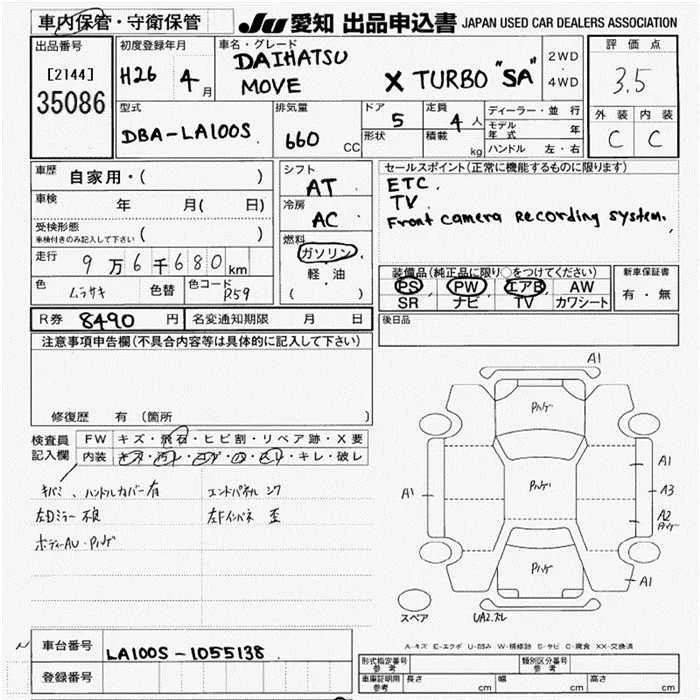 車内保管・守衛保管
JU 愛知 出品申込書 JAPAN USED CAR DEALERS ASSOCIATION
出品番号
[2144]
35086
初度登録年月
H26 4 月
車名・グレード
DAIHATSU
MOVE X TURBO "SA"
2WD
・
4WD
評価点
3.5
外装 内装
C C
型式
DBA-LA100S
排気量
660 CC
ドア 5
形状
定員 4 人
積載 kg
ディーラー・並行
モデル年式 年
ハンドル 左・右
車歴 自家用・( )
車検 年 月( 日)
受検形態
車検付きのみ記入して下さい ( )
走行 9 万 6 千 680 km
色 ムラサキ 色替 色コード P59
シフト
AT
冷房
AC
燃料
ガソリン
・
軽油
( )
セールスポイント(正常に機能するものに限ります)
ETC.
TV.
Front camera Recording system.
装備品(純正品に限り○をつけてください)
PS PW エアB AW
SR ナビ TV カワシート
新車保証書
有・無
R券 8490 円 名変通知期限 月 日
後日品
注意事項申告欄(不具合内容等は具体的に記入して下さい)
修復歴 有 (箇所 )
検査員記入欄
FW キズ・飛石・ヒビ割・リペア跡・X要
内装 キズ・汚レ・コゲ・穴・スレ・キレ・破レ
キバミ、ハンドルカバー有 エンドパネル シワ
左Dミラー 不良 左Fインパネ 歪
ボディーAU・Pハゲ
A1
Pハゲ
A1
A1
Pハゲ
A3
A2
Pハゲ
A1
スペア
UA2.スレ
A-キズ E-エクボ U-凹み W-補修跡 S-サビ C-腐食 XX-交換済
車台番号 LA100S-1055138
登録番号
形式指定番号 参考 類別区分番号 参考
車庫証明用 参考 長さ cm 幅 cm 高さ cm